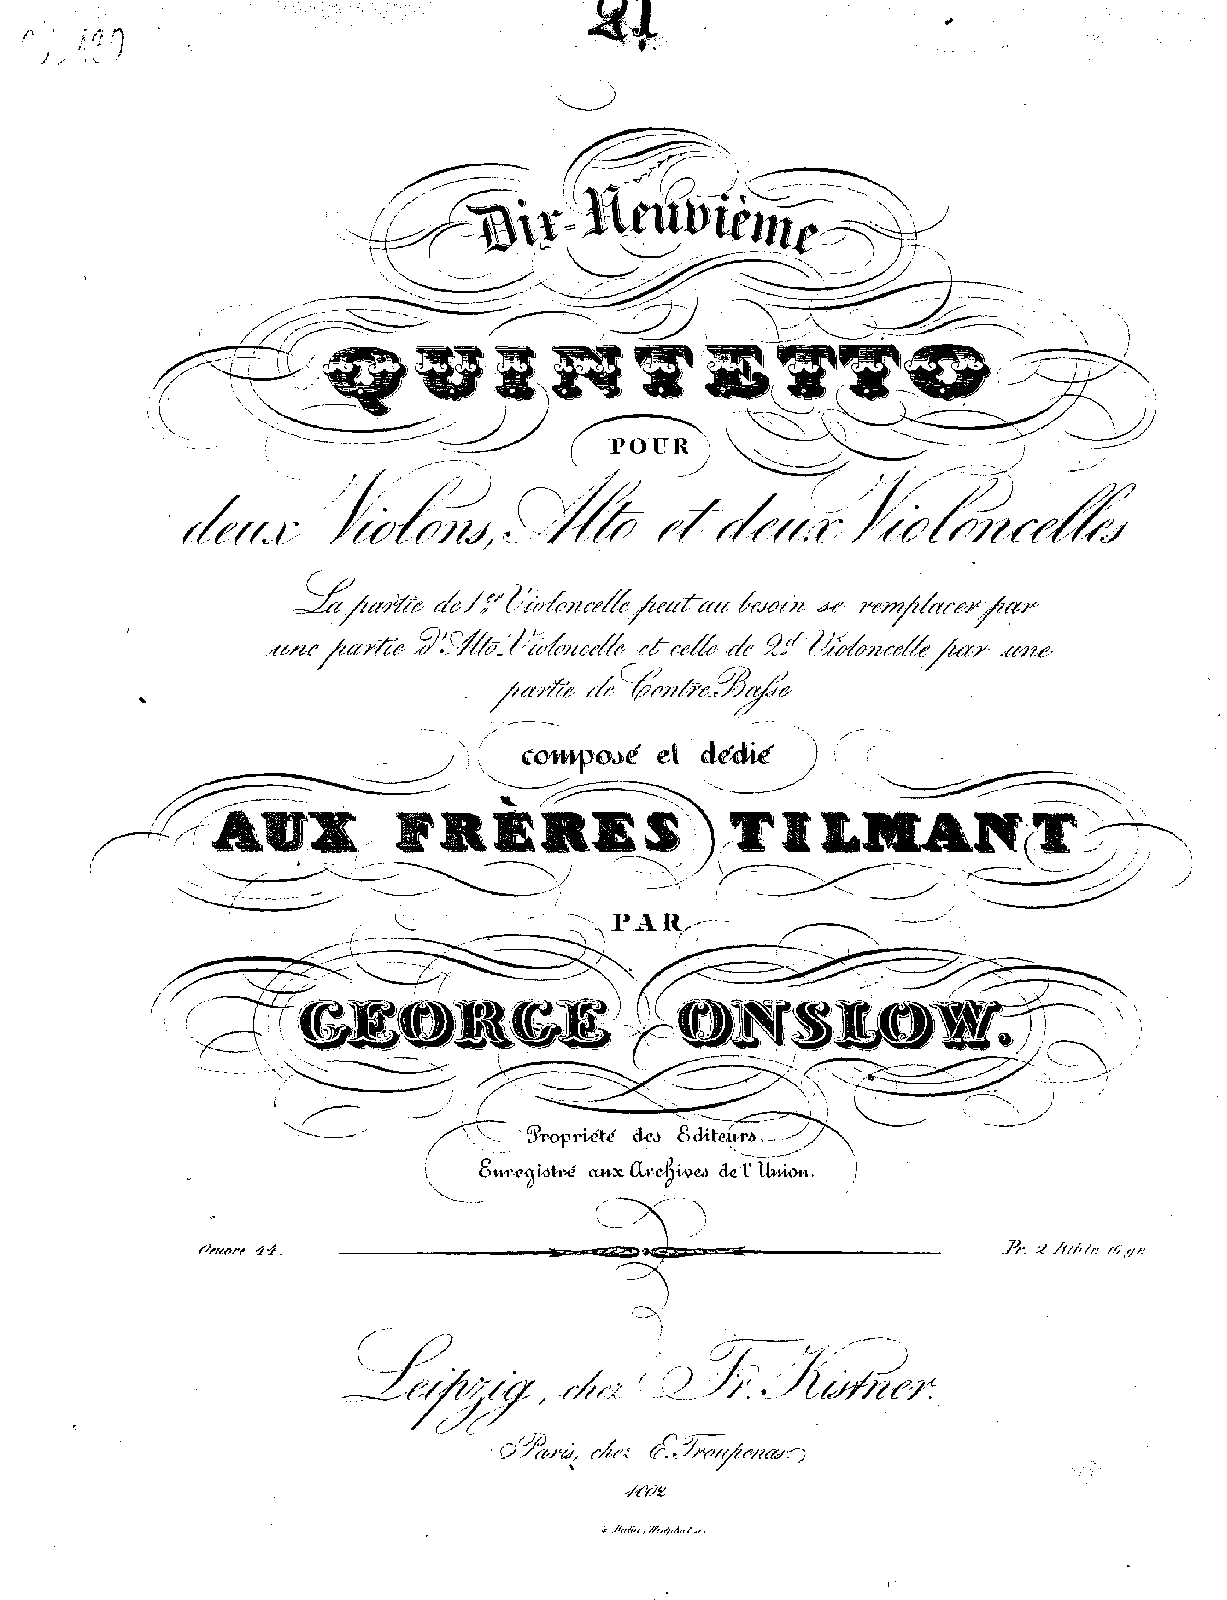 21
Dix-Neuvième
QUINTETTO
POUR
deux Violons, Alto et deux Violoncelles
La partie de 1er Violoncelle peut au besoin se remplacer par
une partie d'Alto Violoncelle et celle de 2d Violoncelle par une
partie de Contre Basse
composé et dédié
AUX FRÈRES TILMANT
PAR
GEORGE ONSLOW.
Propriété des Editeurs.
Enregistré aux Archives de l'Union.
Oeuvre 44.
Pr. 2 Rthlr. 16 gr.
Leipzig, chez Fr. Kistner.
Paris, chez E. Troupenas.